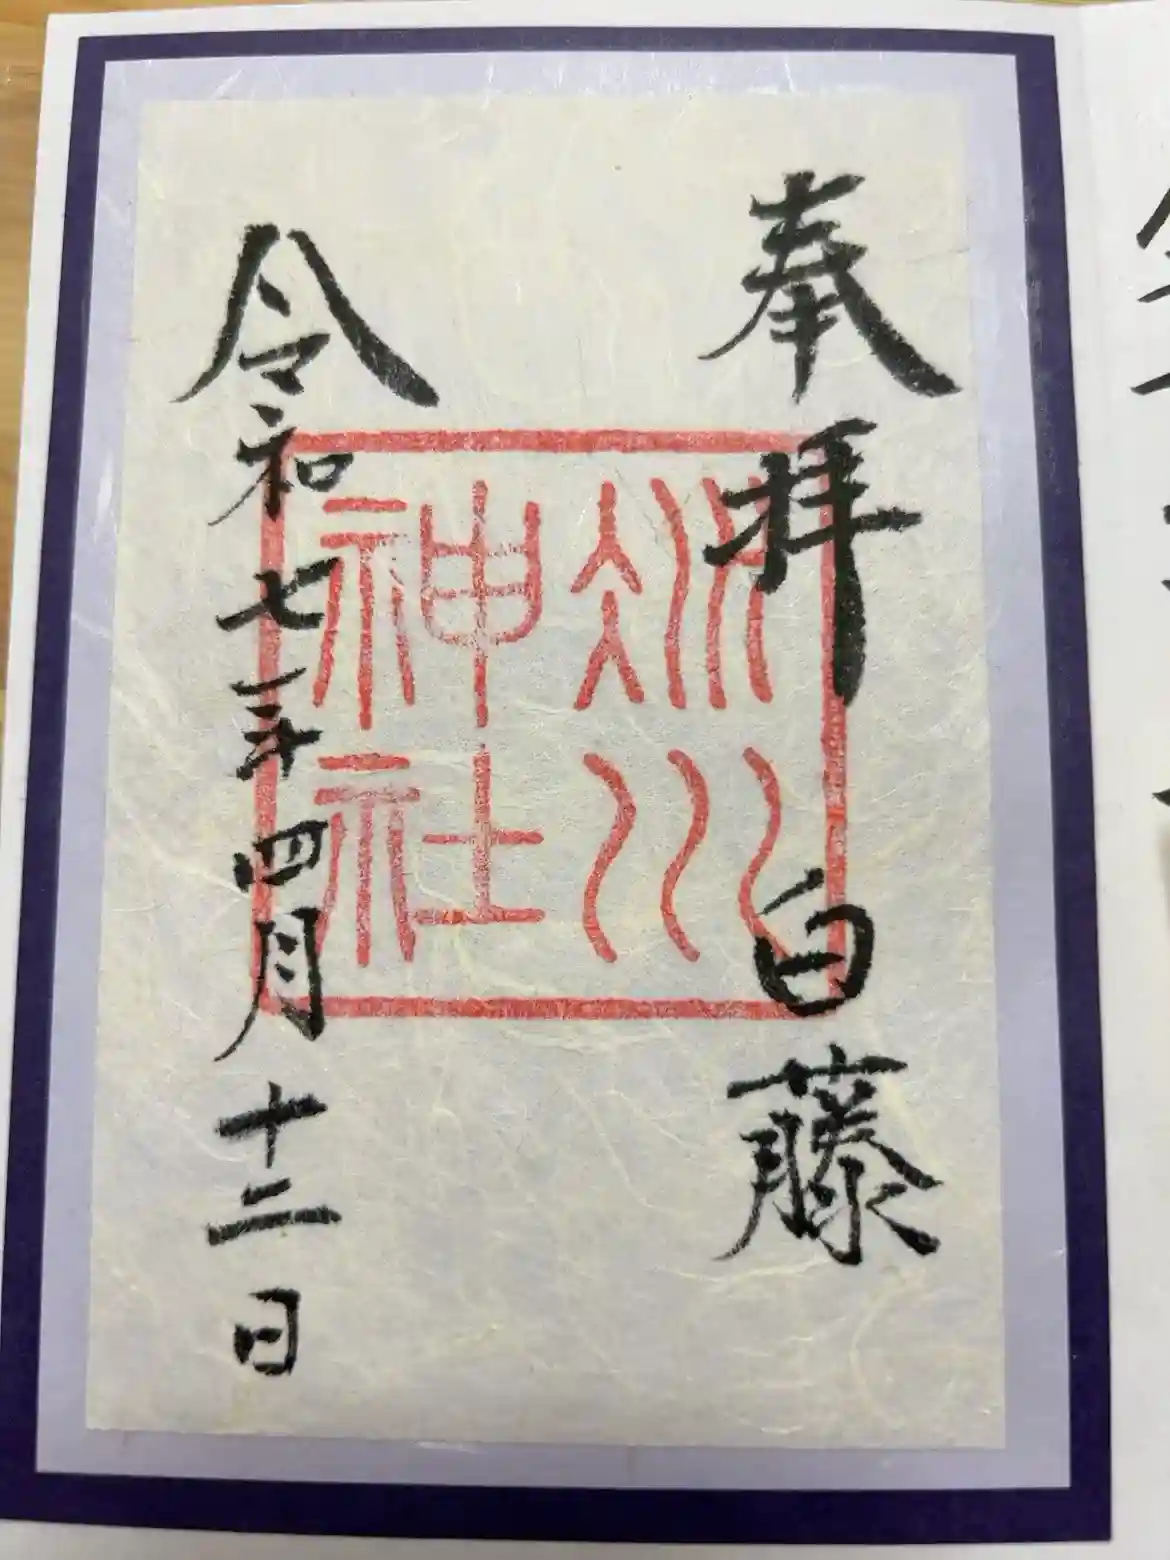 奉拝 白藤
氷川
神社
令和七年四月十二日